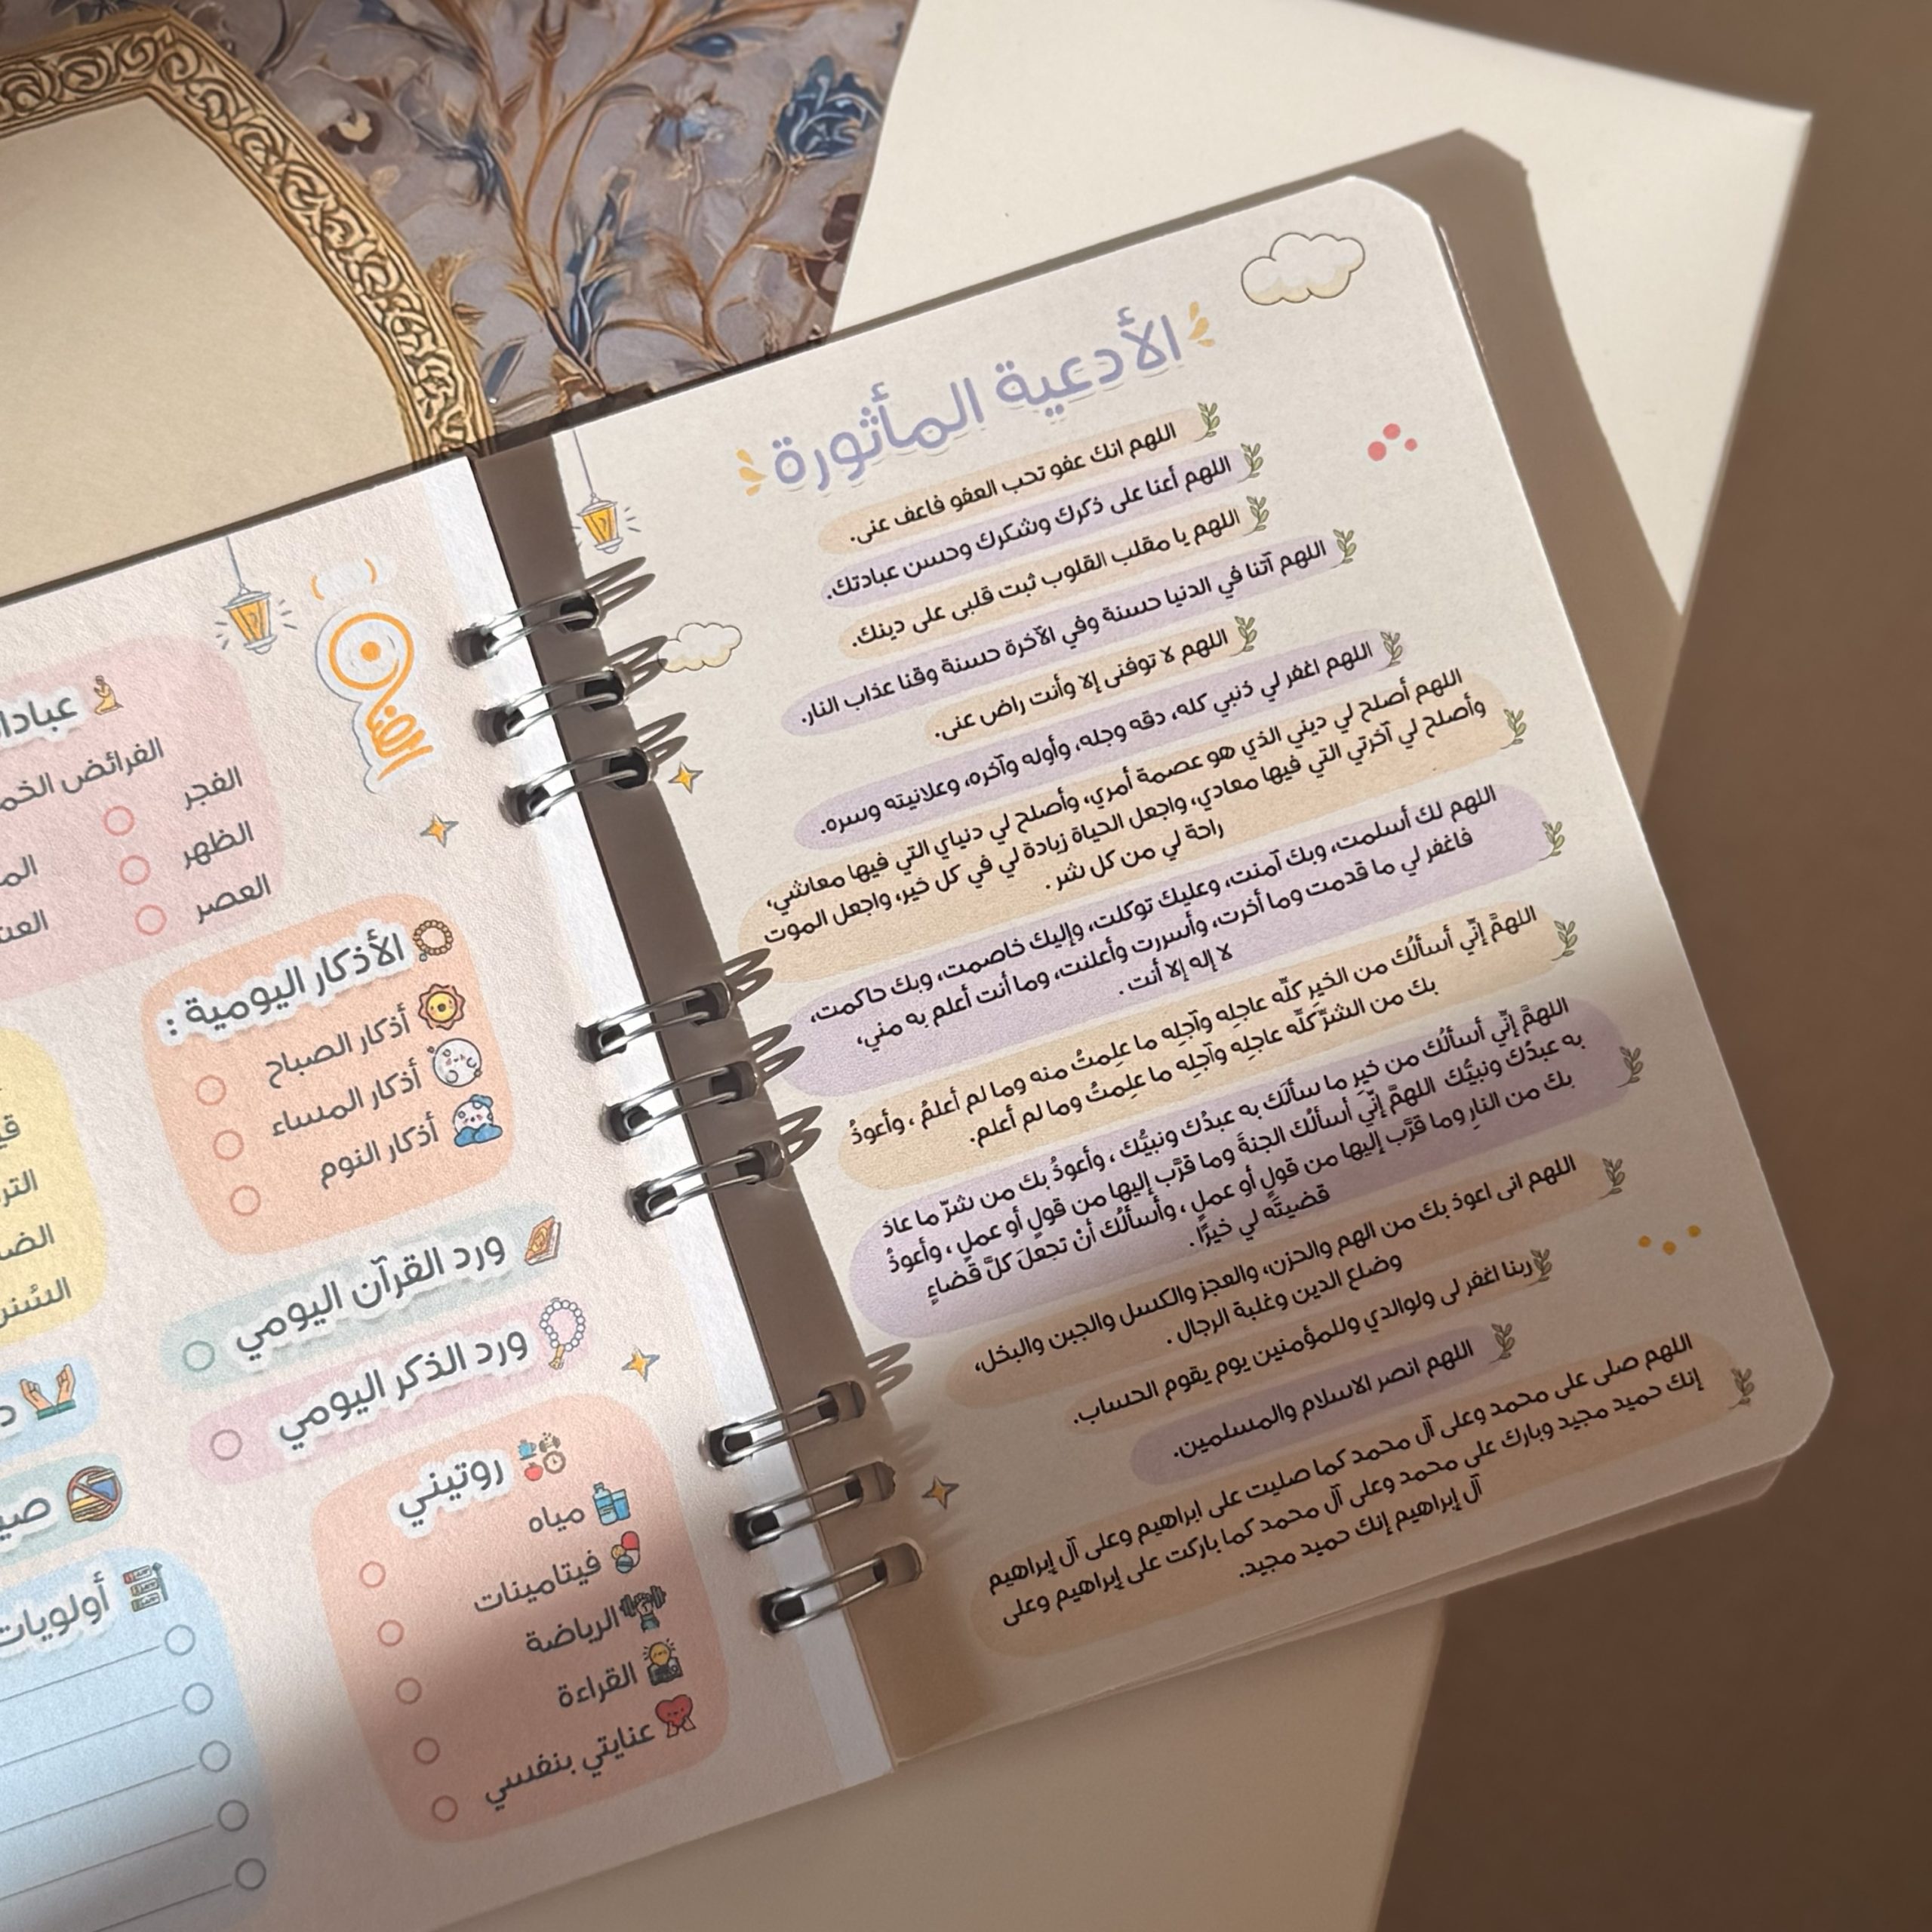 الأدعية المأثورة
اللهم انك عفو تحب العفو فاعف عنى.
اللهم أعنا على ذكرك وشكرك وحسن عبادتك.
اللهم يا مقلب القلوب ثبت قلبى على دينك.
اللهم آتنا في الدنيا حسنة وفي الآخرة حسنة وقنا عذاب النار.
اللهم لا توفنى إلا وأنت راض عنى.
اللهم اغفر لي ذنبي كله، دقه وجله، وأوله وآخره، وعلانيته وسره.
اللهم أصلح لي ديني الذي هو عصمة أمري، وأصلح لي دنياي التي فيها معاشي،
وأصلح لي آخرتي التي فيها معادي، واجعل الحياة زيادة لي في كل خير، واجعل الموت
راحة لي من كل شر .
اللهم لك أسلمت، وبك آمنت، وعليك توكلت، وإليك خاصمت، وبك حاكمت،
فاغفر لي ما قدمت وما أخرت، وأسررت وأعلنت، وما أنت أعلم به مني،
لا إله إلا أنت .
اللهمَّ إنِّي أسألُك من الخيرِ كلِّه عاجلِه وآجلِه ما علِمتُ منه وما لم أعلمُ ، وأعوذُ
بك من الشرِّ كلِّه عاجلِه وآجلِه ما علِمتُ وما لم أعلم.
اللهمَّ إنِّي أسألُك من خيرِ ما سألَك به عبدُك ونبيُّك ، وأعوذُ بك من شرِّ ما عاذ
به عبدُك ونبيُّك اللهمَّ إنِّي أسألُك الجنةَ وما قرَّب إليها من قولٍ أو عملٍ ، وأعوذُ
بك من النارِ وما قرَّب إليها من قولٍ أو عملٍ ، وأسألُك أنْ تجعلَ كلَّ قضاءٍ
قضيتَه لي خيرًا .
اللهم انى اعوذ بك من الهم والحزن، والعجز والكسل والجبن والبخل،
وضلع الدين وغلبة الرجال .
ربنا اغفر لى ولوالدي وللمؤمنين يوم يقوم الحساب.
اللهم انصر الاسلام والمسلمين.
اللهم صلى على محمد وعلى آل محمد كما صليت على ابراهيم وعلى آل إبراهيم
إنك حميد مجيد وبارك على محمد وعلى آل محمد كما باركت على إبراهيم وعلى
آل إبراهيم إنك حميد مجيد.
الفرائض
الفجر
الظهر
العصر
الأذكار اليومية :
أذكار الصباح
أذكار المساء
أذكار النوم
ورد القرآن اليومي
ورد الذكر اليومي
روتيني
مياه
فيتامينات
الرياضة
القراءة
عنايتي بنفسي
أولويات